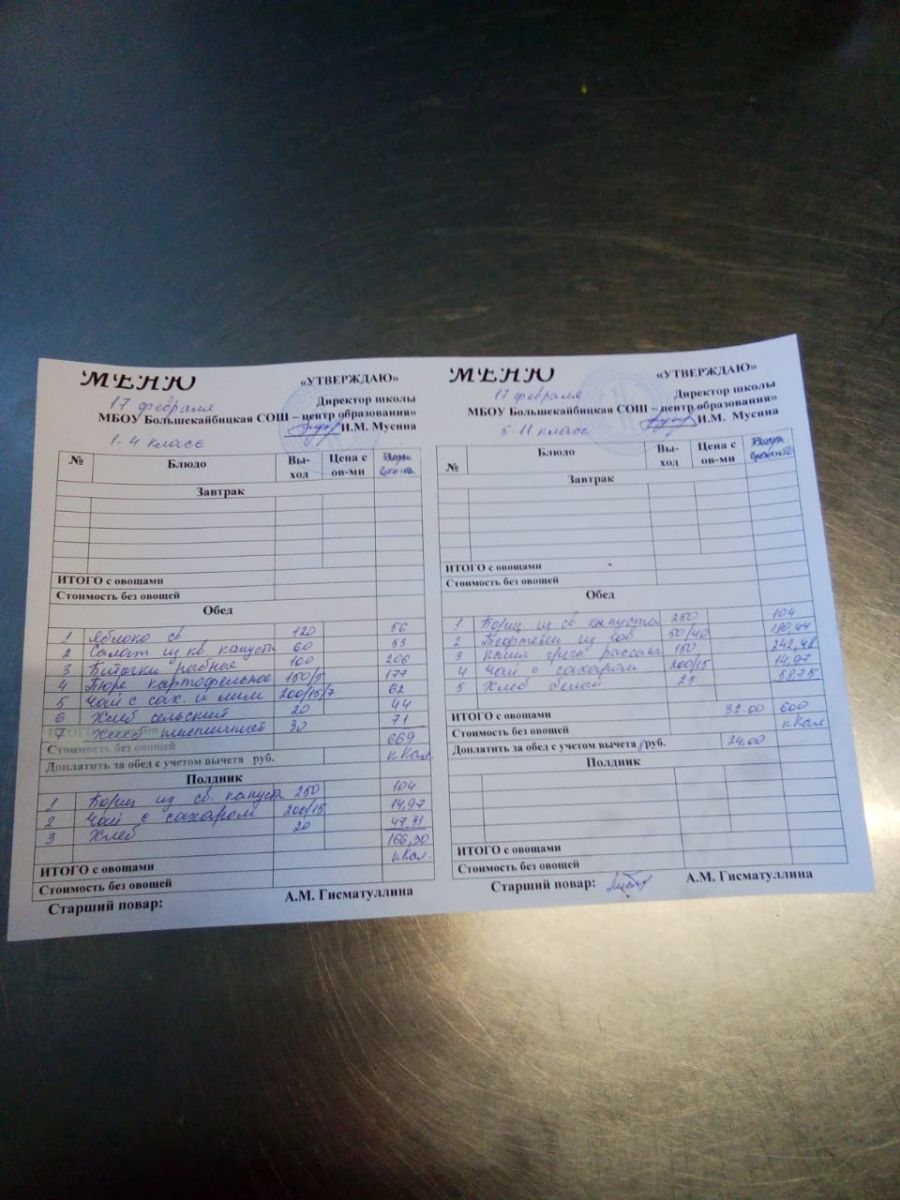 МЕНЮ «УТВЕРЖДАЮ»
17 февраля Директор школы
МБОУ Большекайбицкая СОШ – центр образования»
И.М. Мусина
1-4 класс
№ Блюдо Вы-ход Цена с ов-ми
Завтрак
ИТОГО с овощами
Стоимость без овощей
Обед
1 Яблоко св 120 56
2 Салат из кв. капуста 60 53
3 Биточки рыбные 100 206
4 Пюре картофельное 150/5 177
5 Чай с сах. и лим 200/15/7 62
6 Хлеб сельский 20 44
7 Хлеб пшеничный 30 71
669
Стоимость без овощей кКал.
Доплатить за обед с учетом вычета руб.
Полдник
1 Борщ из св. капуста 250 104
2 Чай с сахаром 200/15 14,97
3 Хлеб 20 47,33
166,30
ИТОГО с овощами кКал.
Стоимость без овощей
Старший повар: А.М. Гисматуллина
МЕНЮ «УТВЕРЖДАЮ»
17 февраля Директор школы
МБОУ Большекайбицкая СОШ – центр образования»
И.М. Мусина
5-11 класс
№ Блюдо Вы-ход Цена с ов-ми
Завтрак
ИТОГО с овощами
Стоимость без овощей
Обед
1 Борщ из св капусты 250 104
2 из гов 50/40 180,44
3 Каша греч 150 242,48
4 Чай с сахаром 200/15 14,97
5 Хлеб белый 25 58,75
ИТОГО с овощами 32.00 600
Стоимость без овощей кКал
Доплатить за обед с учетом вычета руб. 24,00
Полдник
ИТОГО с овощами
Стоимость без овощей
Старший повар: А.М. Гисматуллина